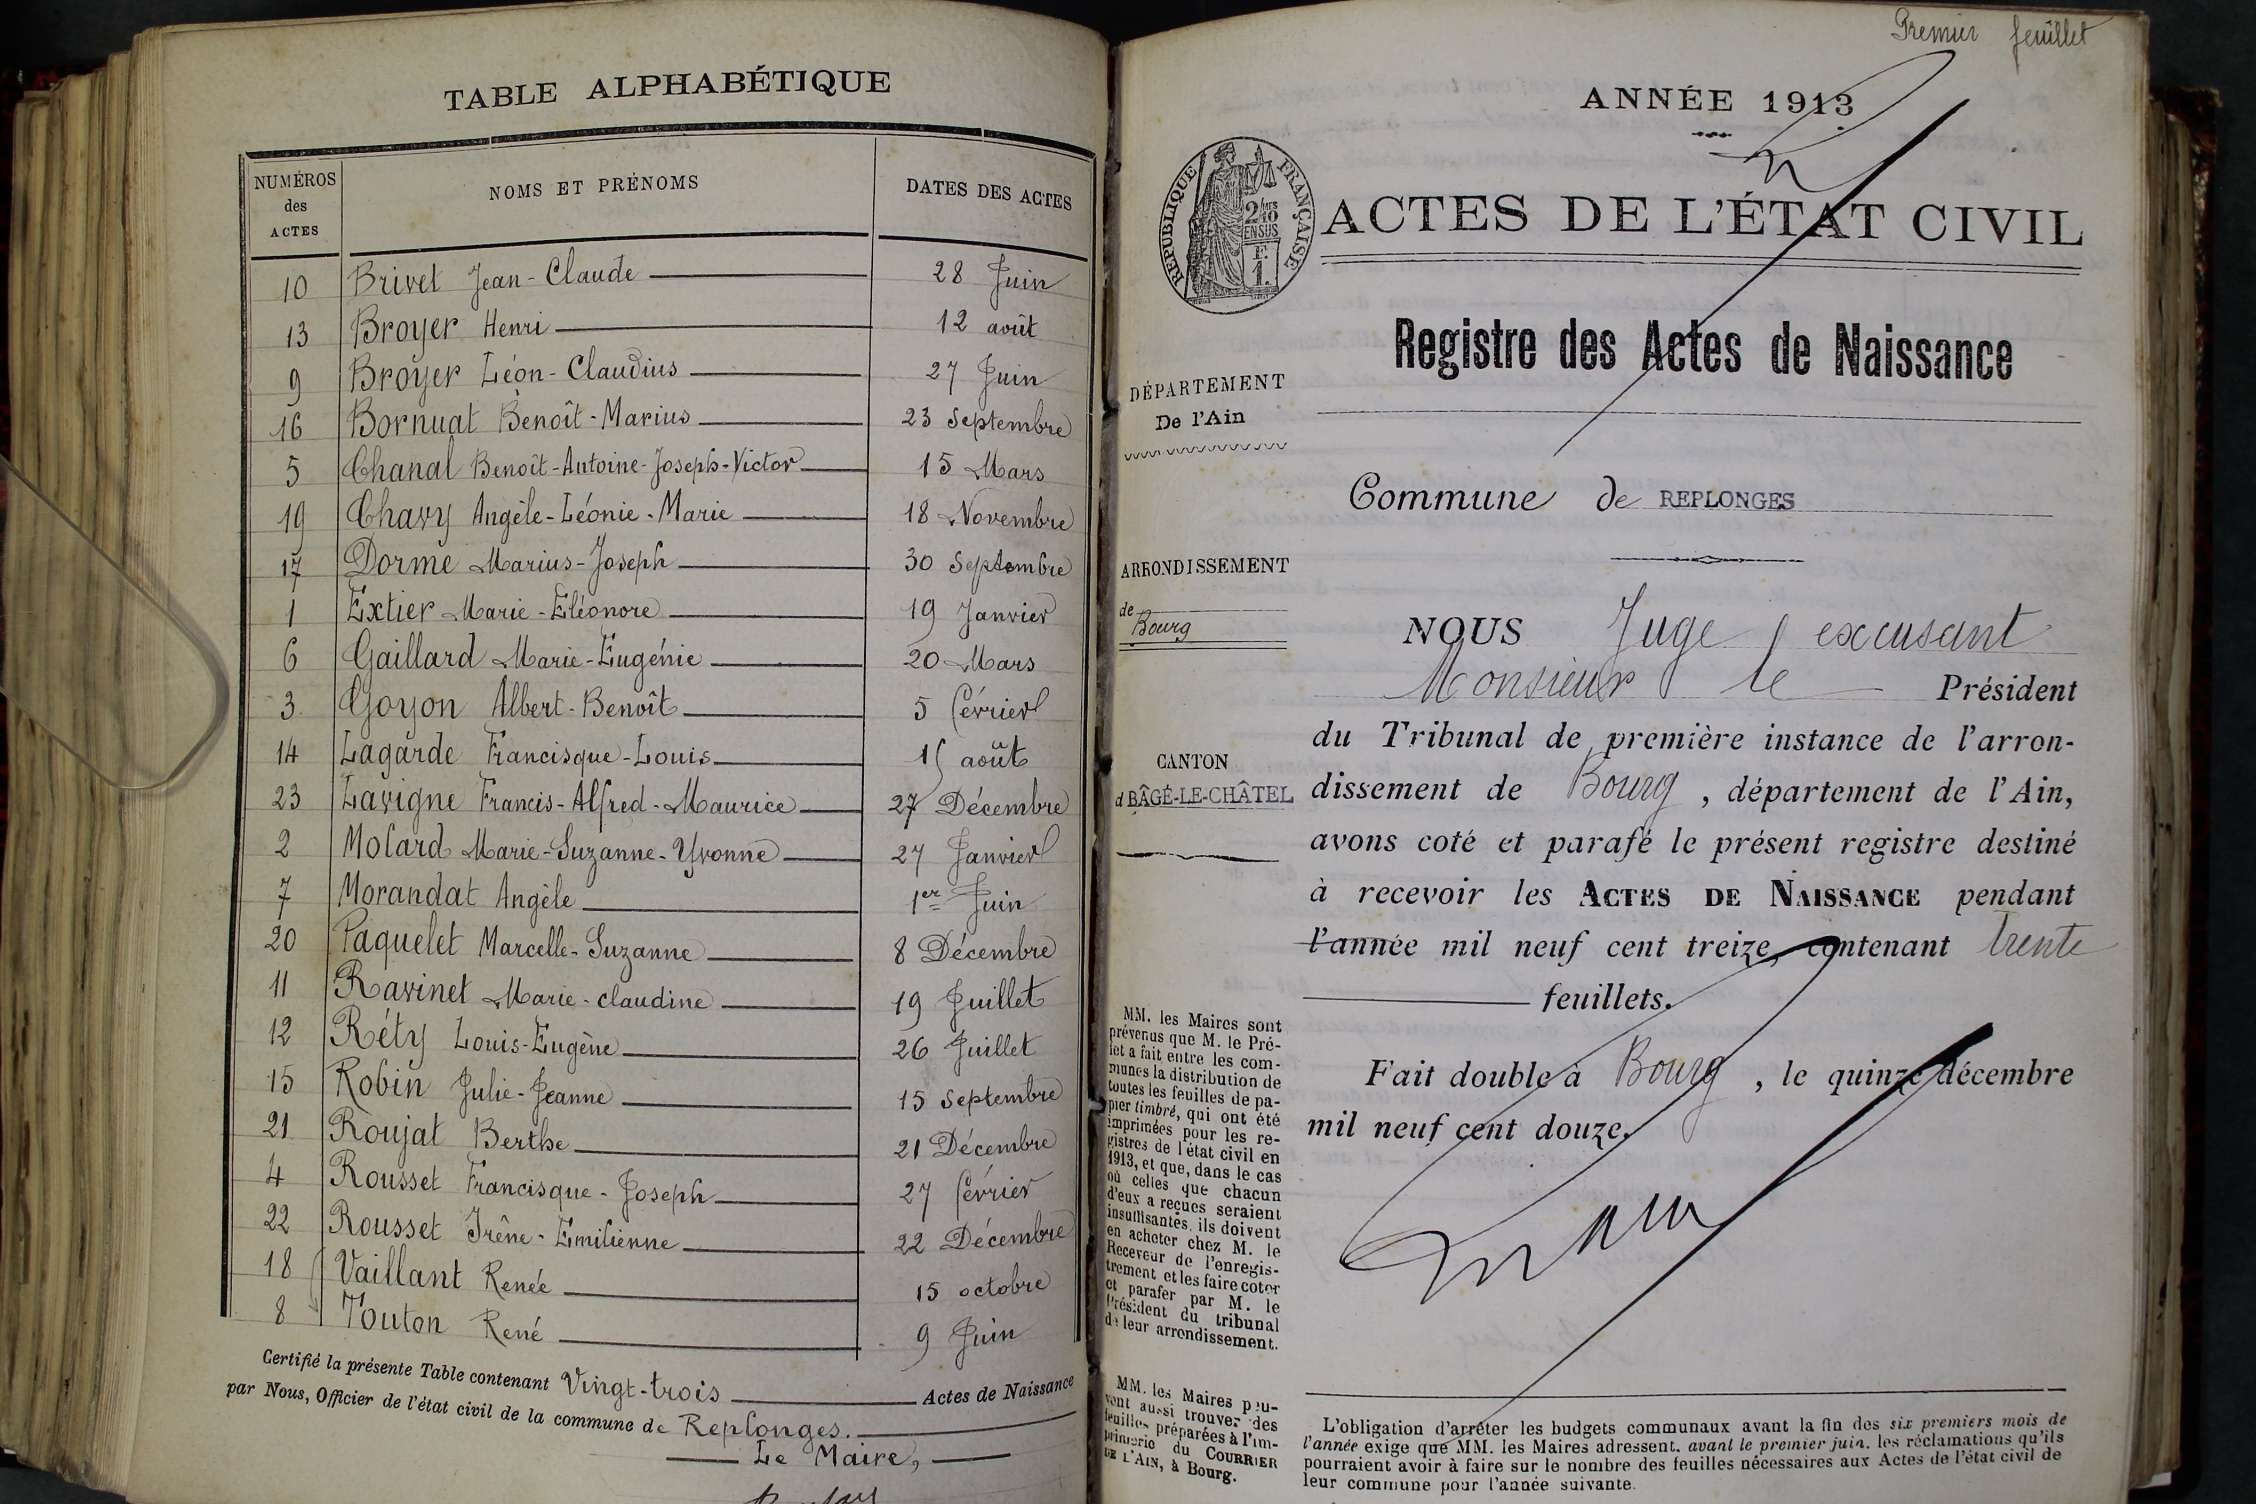 TABLE ALPHABÉTIQUE
NUMÉROS des ACTES NOMS ET PRÉNOMS DATES DES ACTES
10 Brivet Jean-Claude 28 Juin
13 Broyer Henri 12 août
9 Broyer Léon-Claudius 27 Juin
16 Bornuat Benoît-Marius 23 Septembre
5 Chanal Benoît-Antoine-Joseph-Victor 15 Mars
19 Chavy Angèle-Léonie-Marie 18 Novembre
17 Dorme Marius-Joseph 30 Septembre
1 Extier Marie-Eléonore 19 Janvier
6 Gaillard Marie-Eugénie 20 Mars
3 Goyon Albert-Benoît 5 Février
14 Lagarde Francisque-Louis 15 août
23 Lavigne Francis-Alfred-Maurice 27 Décembre
2 Molard Marie-Suzanne-Yvonne 27 Janvier
7 Morandat Angèle 1er Juin
20 Paquelet Marcelle-Suzanne 8 Décembre
11 Ravinet Marie-claudine 19 Juillet
12 Réty Louis-Eugène 26 Juillet
15 Robin Julie-Jeanne 15 Septembre
21 Roujat Berthe 21 Décembre
4 Rousset Francisque-Joseph 27 Février
22 Rousset Irêne-Emilienne 22 Décembre
18 Vaillant Renée 15 octobre
8 Touton René 9 Juin
Certifié la présente Table contenant Vingt-trois Actes de Naissance
par Nous, Officier de l'état civil de la commune de Replonges.
Le Maire,
Premier feuillet
ANNÉE 1913
RÉPUBLIQUE FRANÇAISE
2/10 EN SUS
1.
ACTES DE L'ÉTAT CIVIL
Registre des Actes de Naissance
DÉPARTEMENT
De l'Ain
Commune de REPLONGES
ARRONDISSEMENT
de Bourg
NOUS Juge excusant
Monsieur le Président
du Tribunal de première instance de l'arron-
CANTON
d BÂGÉ-LE-CHÂTEL
dissement de Bourg, département de l'Ain,
avons coté et parafé le présent registre destiné
à recevoir les ACTES DE NAISSANCE pendant
l'année mil neuf cent treize, contenant trente
feuillets.
Fait double à Bourg, le quinze décembre
mil neuf cent douze.
MM. les Maires sont
prévenus que M. le Pré-
fet a fait entre les com-
munes la distribution de
toutes les feuilles de pa-
pier timbré, qui ont été
imprimées pour les re-
gistres de l'état civil en
1913, et que, dans le cas
où celles que chacun
d'eux a reçues seraient
insuffisantes, ils doivent
en acheter chez M. le
Receveur de l'enregis-
trement et les faire coter
et parafer par M. le
Président du tribunal
de leur arrondissement.
MM. les Maires peu-
vent aussi trouver des
feuilles préparées à l'im-
primerie du COURRIER
DE L'AIN, à Bourg.
L'obligation d'arrêter les budgets communaux avant la fin des six premiers mois de
l'année exige que MM. les Maires adressent, avant le premier juin, les réclamations qu'ils
pourraient avoir à faire sur le nombre des feuilles nécessaires aux Actes de l'état civil de
leur commune pour l'année suivante.